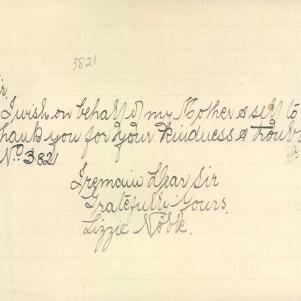 3821
ir
I wish on behalf of my Mother & self to
hank you for your kindness & troub
No. 3821
I remain Dear Sir
Gratefully Yours.
Lizzie Noble.